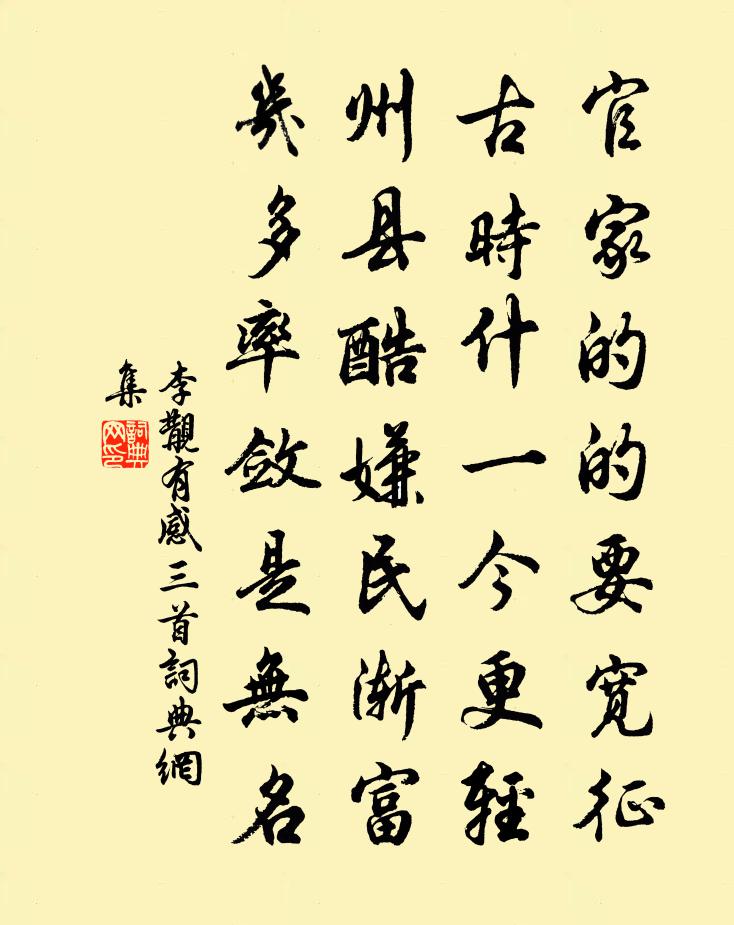 官家的的要寛征
古時什一今更輕
州县酷嫌民漸富
幾多率斂是無名
李覯有感三首詞典網
集
詞典
网印